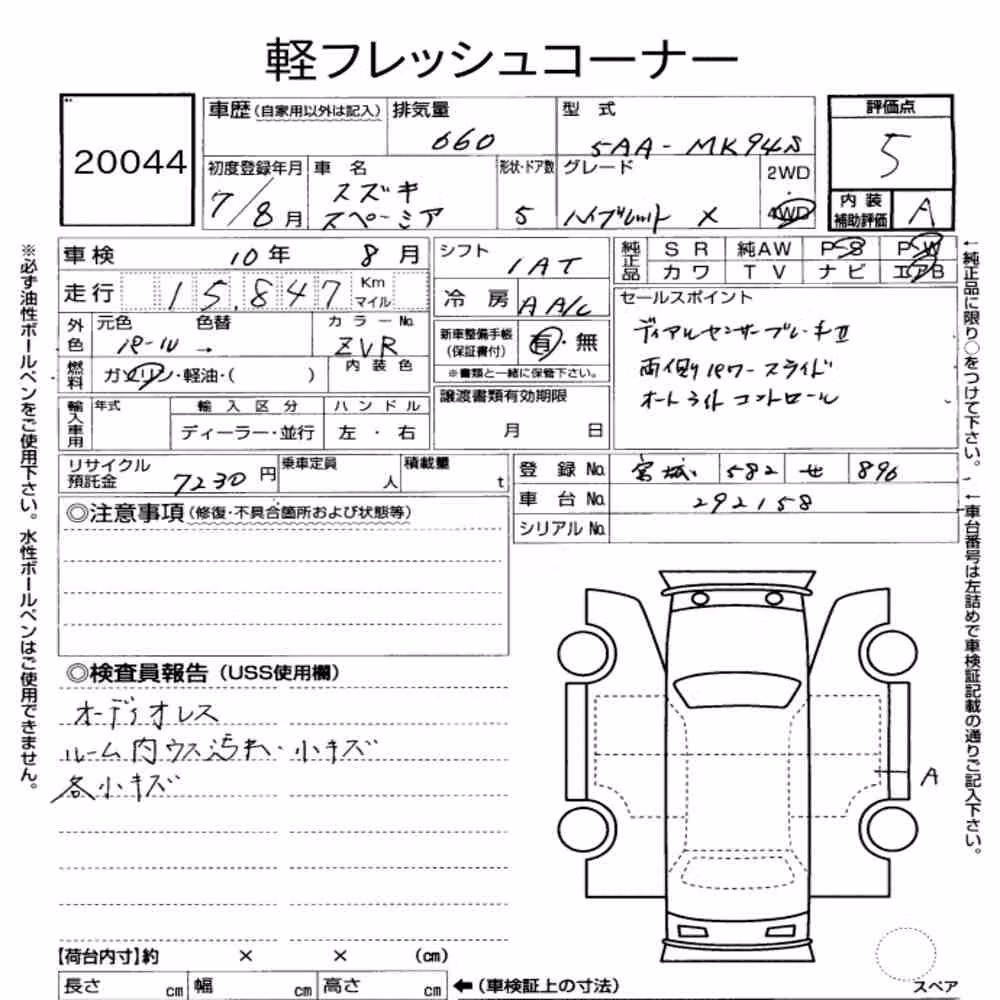 軽フレッシュコーナー
20044
車歴(自家用以外は記入) 排気量 660 型式 5AA-MK94S
評価点 5
初度登録年月 7/8月 車名 スズキ スペーシア 形状・ドア数 5 グレード ハイブリット X 2WD 4WD
内装補助評価 A
※必ず油性ボールペンをご使用下さい。水性ボールペンはご使用できません。
車検 10年 8月
走行 15,847 Km マイル
外色 元色 パール 色替 → カラーNo. ZVR
燃料 ガソリン・軽油・( ) 内装色
輸入車用 年式 輸入区分 ディーラー・並行 ハンドル 左・右
シフト IAT
冷房 A A/C
新車整備手帳(保証書付) 有・無
※書類と一緒に保管下さい。
譲渡書類有効期限 月 日
純正品 SR 純AW P-S P-W
カワ TV ナビ エアB
セールスポイント
ディアルセンサーブレーキⅡ
両側パワースライド
オートライトコントロール
←純正品に限り○をつけて下さい。
←車台番号は左詰めで車検証記載の通りご記入下さい。
リサイクル預託金 7230円 乗車定員 人 積載量 t
登録No. 宮城 582 せ 896
車台No. 292158
シリアルNo.
◎注意事項(修復・不具合箇所および状態等)
◎検査員報告(USS使用欄)
オーディオレス
ルーム内ウス汚れ・小キズ
各小キズ
A
【荷台内寸】約 × × (cm)
長さ cm 幅 cm 高さ cm ←(車検証上の寸法)
スペア